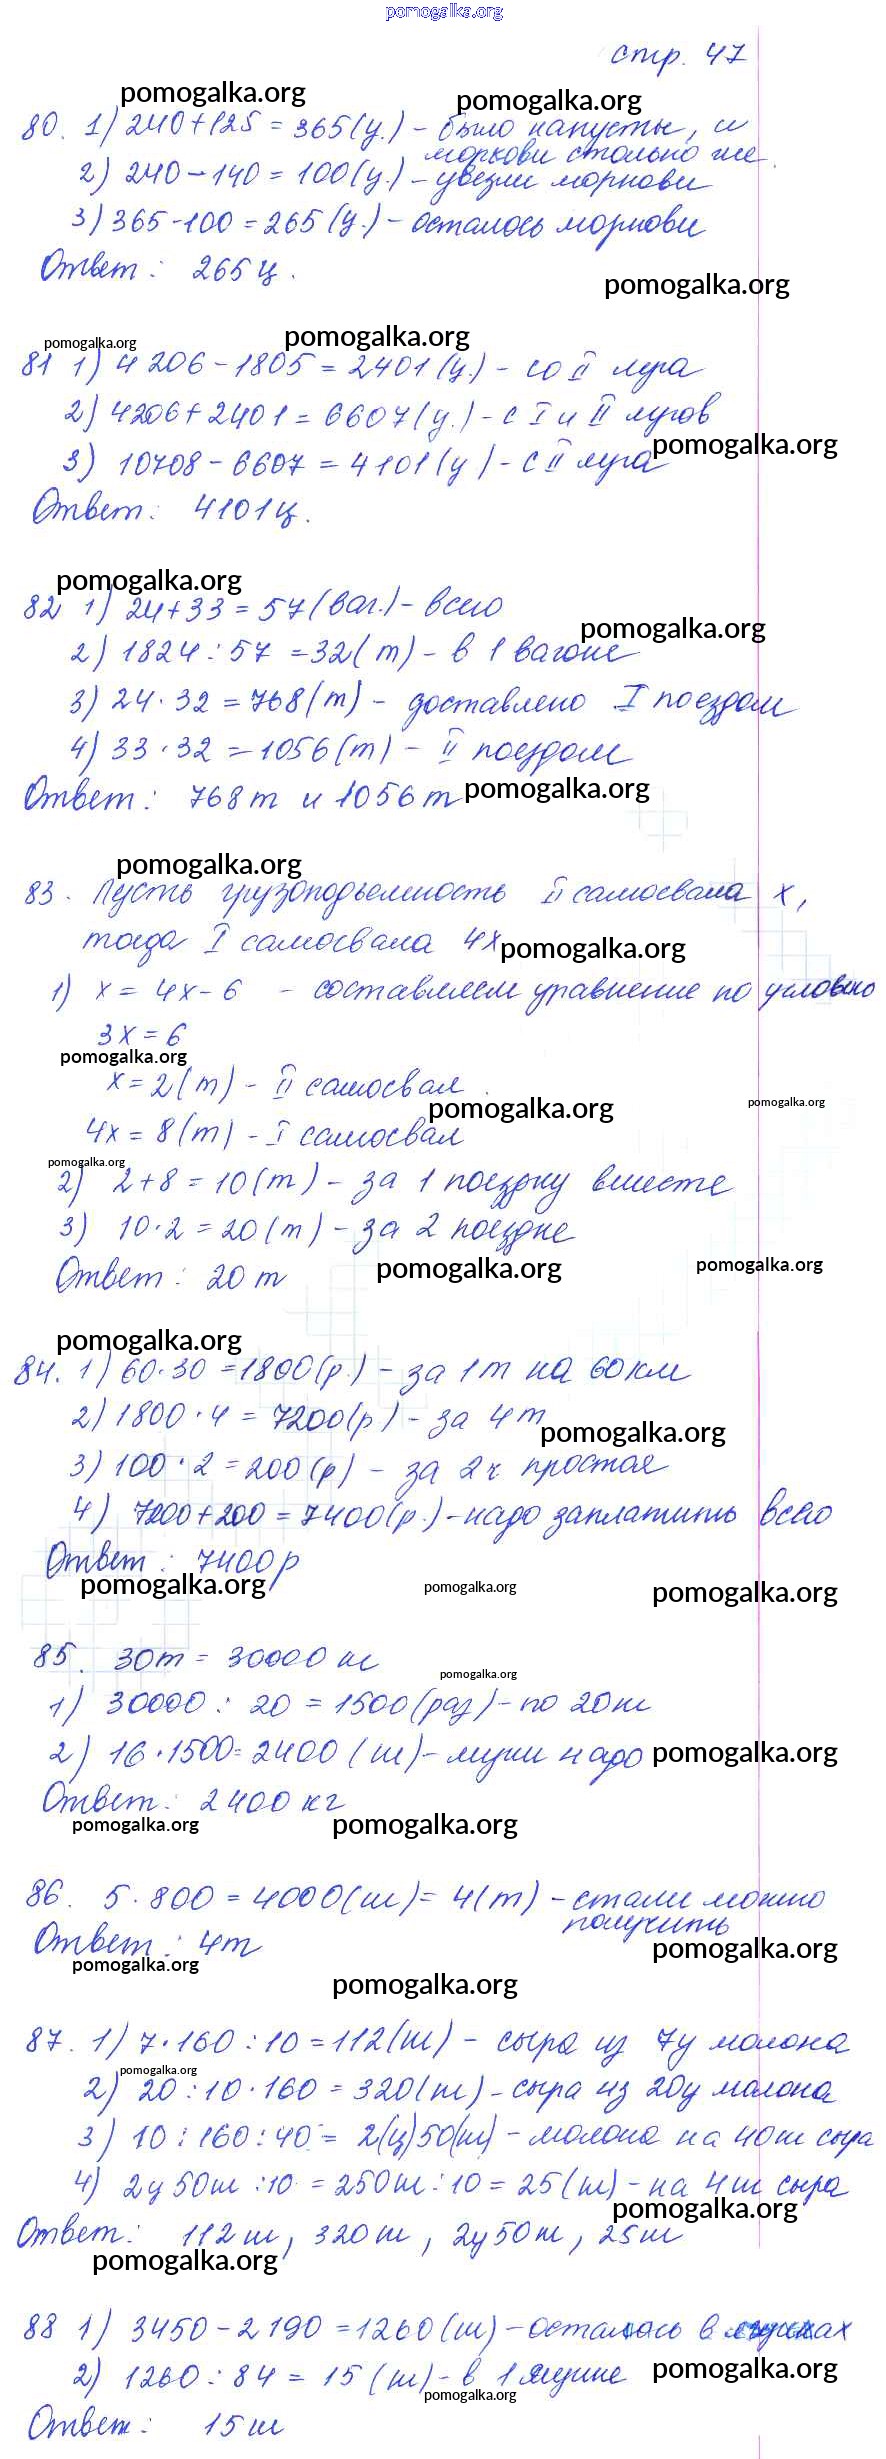 pomogalka.org
стр. 47
pomogalka.org
pomogalka.org
80. 1) 240+125 = 365 (ц.) - было капусты, и
моркови столько же.
2) 240 - 140 = 100 (ц.) - увезли моркови
3) 365 - 100 = 265 (ц.) - осталось моркови
Ответ: 265 ц.
pomogalka.org
pomogalka.org
pomogalka.org
81 1) 4 206 - 1805 = 2401 (ц.) - со II луга
2) 4206 + 2401 = 6607 (ц.) - с I и II лугов
pomogalka.org
3) 10708 - 6607 = 4101 (ц) - с II луга
Ответ: 4101 ц.
pomogalka.org
82 1) 24 + 33 = 57 (ваг.) - всего
pomogalka.org
2) 1824 : 57 = 32 (т) - в 1 вагоне
3) 24 · 32 = 768 (т) - доставлено I поездом
4) 33 · 32 = 1056 (т) - II поездом
Ответ: 768 т и 1056 т
pomogalka.org
pomogalka.org
83. Пусть грузоподъемность II самосвала x,
тогда I самосвала 4x
pomogalka.org
1) x = 4x - 6 - составляем уравнение по условию
3x = 6
pomogalka.org
x = 2 (т) - II самосвал
pomogalka.org
pomogalka.org
4x = 8 (т) - I самосвал
pomogalka.org
2) 2 + 8 = 10 (т) - за 1 поездку вместе
3) 10 · 2 = 20 (т) - за 2 поездке
Ответ: 20 т
pomogalka.org
pomogalka.org
pomogalka.org
84. 1) 60 · 30 = 1800 (р.) - за 1 т на 60 км
2) 1800 · 4 = 7200 (р) - за 4 т
pomogalka.org
3) 100 · 2 = 200 (р) - за 2 ч. простоя
4) 7200 + 200 = 7400 (р.) - надо заплатить всего
Ответ: 7400 р
pomogalka.org
pomogalka.org
pomogalka.org
85. 30 т = 30000 кг
pomogalka.org
1) 30000 : 20 = 1500 (раз) - по 20 кг
2) 16 · 1500 = 2400 (кг) - муки надо
pomogalka.org
Ответ: 2400 кг
pomogalka.org
pomogalka.org
86. 5 · 800 = 4000 (кг) = 4 (т) - стали можно
получить
Ответ: 4 т
pomogalka.org
pomogalka.org
pomogalka.org
87. 1) 7 · 160 : 10 = 112 (кг) - сыра из 7 ц молока
pomogalka.org
2) 20 : 10 · 160 = 320 (кг) - сыра из 20 ц молока
3) 10 : 160 : 40 = 2 (ц) 50 (кг) - молока на 40 кг сыра
4) 2 ц 50 кг : 10 = 250 кг : 10 = 25 (кг) - на 4 кг сыра
pomogalka.org
Ответ: 112 кг, 320 кг, 2 ц 50 кг, 25 кг
pomogalka.org
88 1) 3450 - 2190 = 1260 (кг) - осталось в ящиках
2) 1260 : 84 = 15 (кг) - в 1 ящике
pomogalka.org
pomogalka.org
Ответ: 15 кг